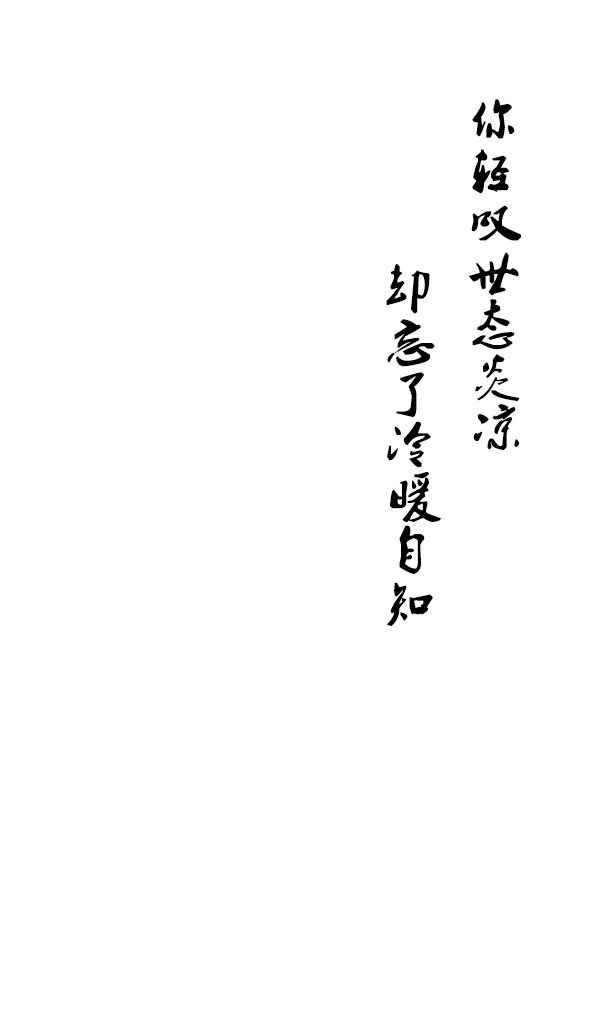 你轻叹世态炎凉
却忘了冷暖自知